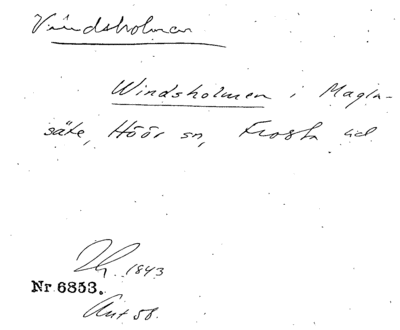 Vindsholmen
Windsholmen i Magla-
säte, Höör sn, Frosta hd
1843
Nr 6853.
Ant 58.